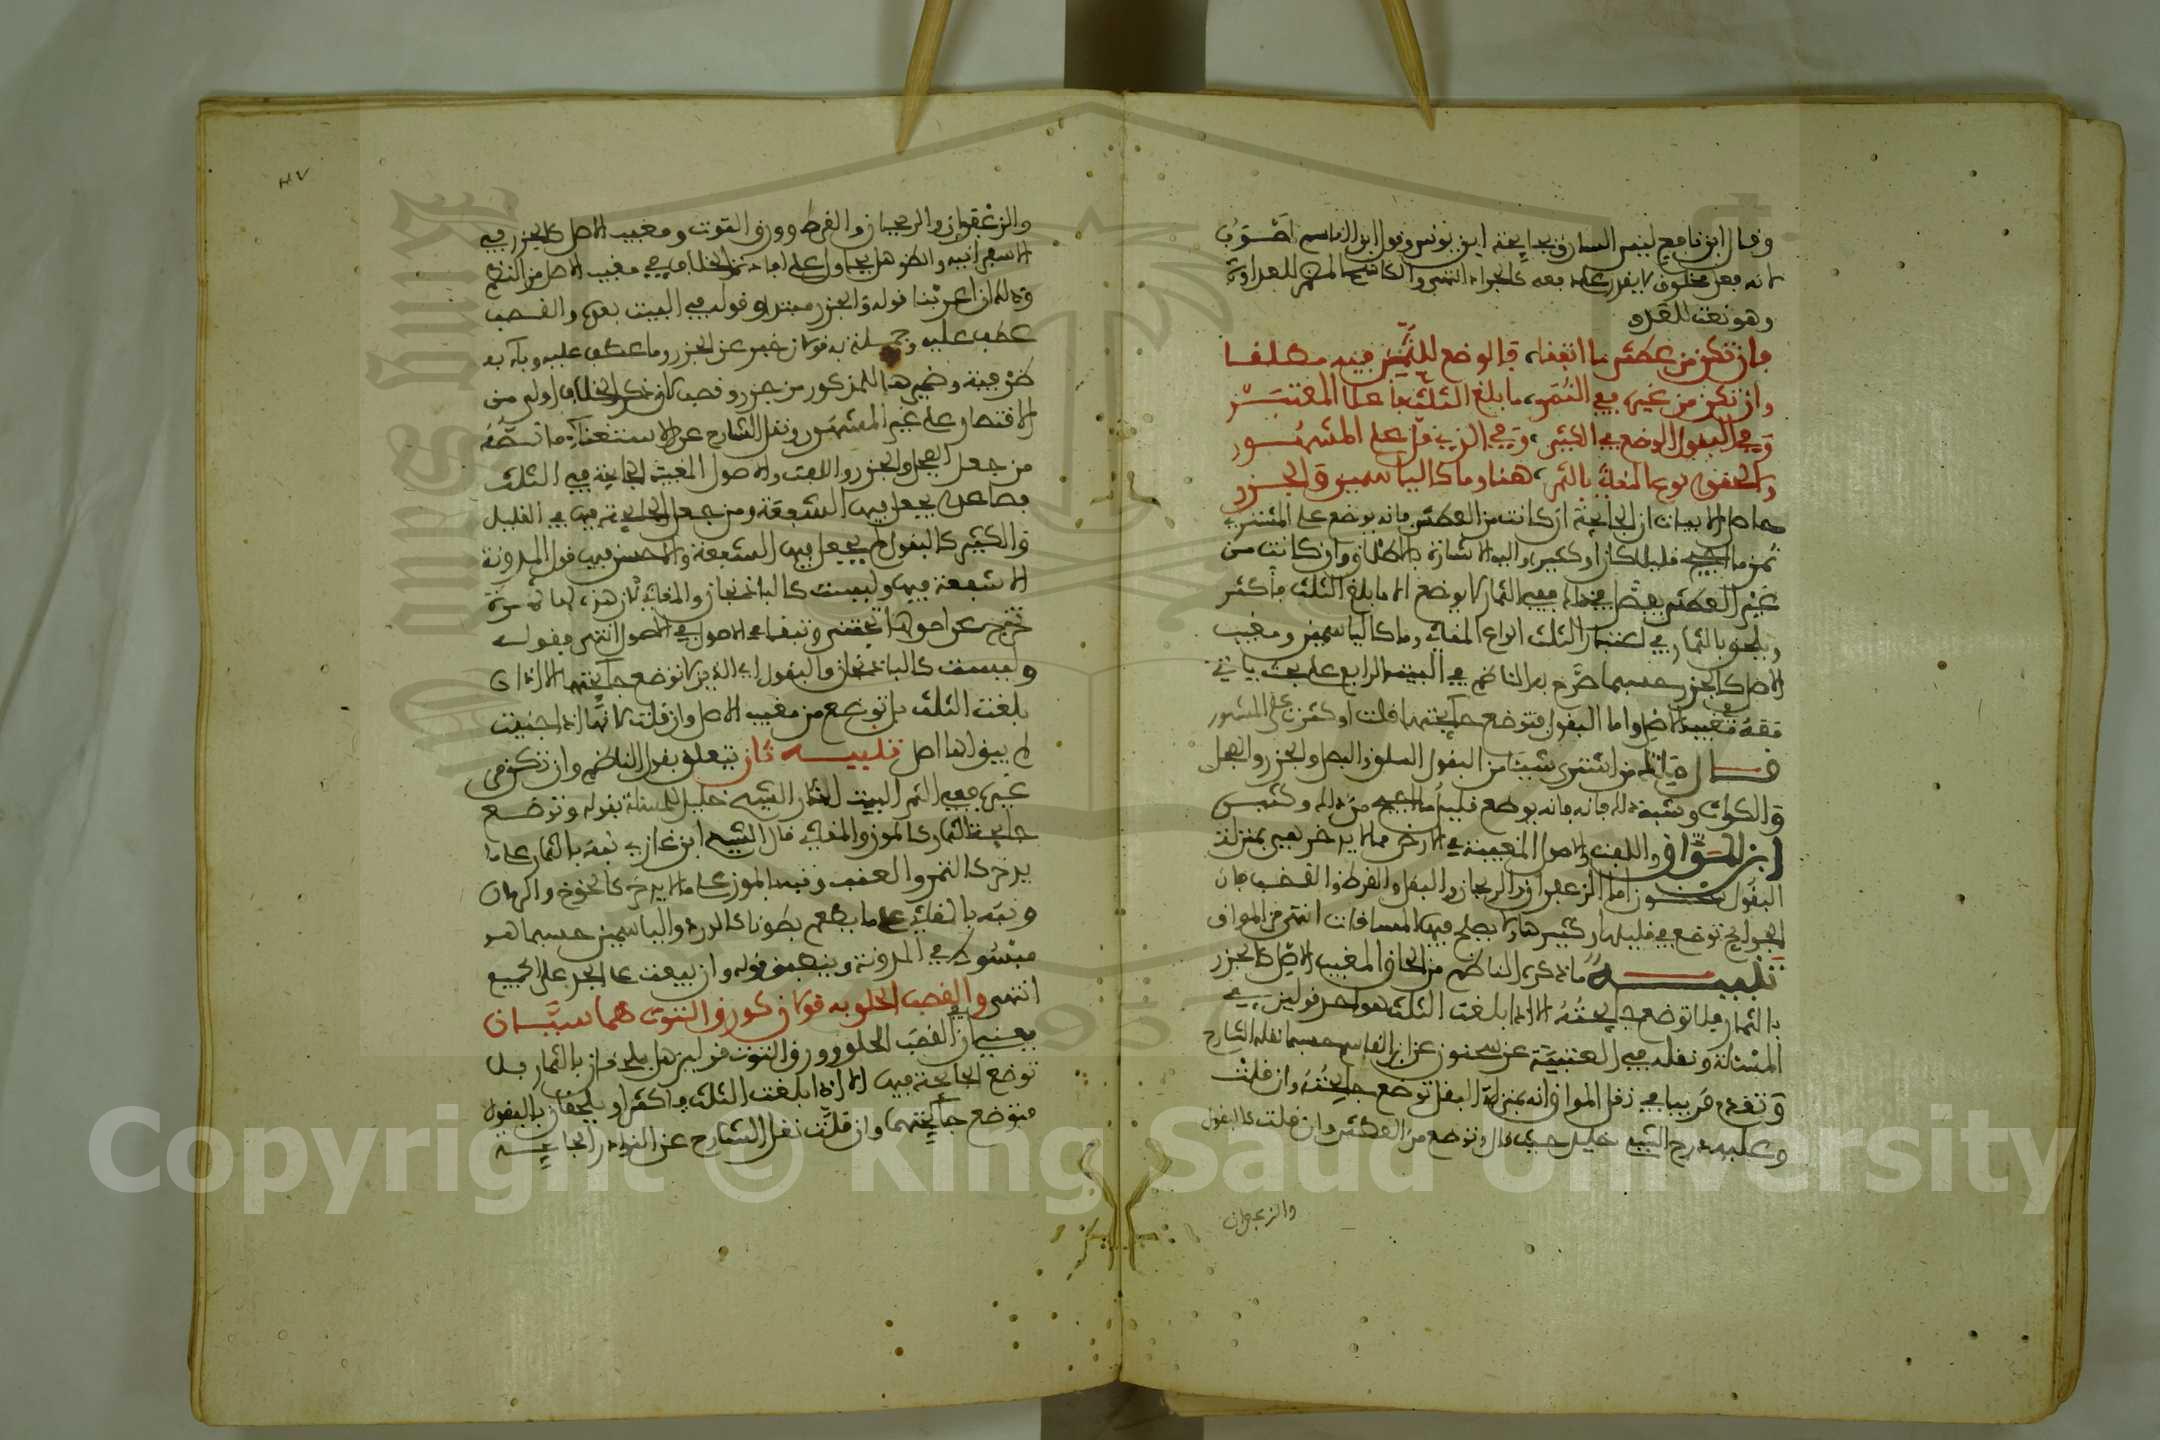 وقال ابن نافع ليس السارق بجائحة ابن يونس وقول ابن القاسم اصوب
لانه فعل مخلوق لا يقدر على دفعه كالجراد انتهى والكاشح المضمر للعداوة
وهو نعت للعدو
وان تكن من عطش ما اتفقا، فالوضع للثمن فيه مطلقا
وان تكن من غيره ففي الثمر، ما بلغ الثلث فاعلا المعتبر
وفي البقول الوضع في الكثير، وفي الذي قل على المشهور
والحقوا نوع المقاثي بالثمر، هنا وما كالياسمين والجزر
حاصل الابيات ان الجائحة ان كانت من العطش فانه يوضع على المشتري
ثمن ما اجيح قليلا كان او كثيرا واليه الاشارة بالاطلاق وان كانت من
غير العطش بفصل في ذلك ففي الثمار لا يوضع الا ما بلغ الثلث فاكثر
ويلحق بالثمار في اعتبار الثلث انواع المقاثي وما كالياسمين ومغيب
الاصل كالجزر حسبما صرح به الناظم في البيت الرابع على بحث ياتي
فقه مغيب الاصل واما البقول فتوضع جائحتها قلت او كثرت على المشهور
قال مالك من اشترى شيئا من البقول السلق والبصل والجزر والفجل
والكراث وشبه ذلك فانه يوضع قليل ما اجيح من ذلك وكثيره
ابن المواق واللفت والاصول المغيبة في الارض مما لا يدخر فهي بمنزلة
البقول سحنون اما الزعفران والريحان والبقل والقرط والقضب فان
الجوائح توضع في قليلها وكثيرها ولا يصلح فيها المساقات انتهى من المواق
تنبيه ما ذكره الناظم من الحاق المغيب الاصل كالجزر
بالثمار فلا توضع جائحته الا اذا بلغت الثلث هو احد قولين في
المسئلة ونقله في العتبية عن سحنون عن ابن القاسم حسبما نقله الشارح
وتقدم قريبا في نقل المواق انه بمنزلة البقل توضع جائحته وان قلت
وعليه درج الشيخ خليل حيث قال وتوضع من العطش وان قلت كالبقول
والزعفران
والزعفران والريحان والقرط وورق التوت ومغيب الاصل كالجزر فيه
الاسفرانيه وانظر هل يحاول على افادة الخلاف في مغيب الاصل من النظم
وذلك ان اعربنا قوله والجزر مبتدا وقوله في البيت بعد والقصب
عطف عليه وجملة به قولان خبر عن الجزر وما عطف عليه وباء به
ظرفية وضميرها للمذكور من جزر وقصب لان ذكر الخلاف اولى من
الاقتصار على غير المشهور ونقل الشارح عن الاستغناء ما نصه
من جعل الفجل والجزر واللفت والاصول المغيبة الجائحة فيه الثلث
فصاعدا يجعل فيها الشفعة ومن جعل الجائحة فيها في القليل
والكثير كالبقول لم يجعل فيها الشفعة والاحسن فيها قول المدونة
الا شفعة فيها وليست كالباذنجان والمقاثي لان هذه لها ثمرة
تخرج عن اصولها تجتنى وتبقى الاصول في الاصول انتهى فقوله
وليست كالباذنجان والبقول اي الذين لا توضع جائحتها الا اذا
بلغت الثلث بل توضع من مغيب الاصل وان قلت لانها اذا جنيت
لم يبق لها اصل تنبيه ثان يتعلق بقول الناظم وان تكن من
غيره ففي الثمر البيت اشار الشيخ خليل للمسئلة بقوله وتوضع
جائحة الثمار كالموز والمقاثي قال الشيخ ابن غازي نبه بالثمار على ما
يدخر كالتمر والعنب ونبه بالموز على ما لا يدخر كالخوخ والرمان
ونبه بالمقاثي على ما يطعم بطونا كالورد والياسمين حسبما هو
مبسوط في المدونة وينظم قوله وان بيعت على الجد على الجميع
انتهى والقصب الحلو به قولان كورق التوت هما سيان
يعني ان في القصب الحلو وورق التوت قولين هل يلحقان بالثمار فلا
توضع الجائحة فيها الا اذا بلغت الثلث فاكثر او يلحقان بالبقول
فتوضع جائحتهما وان قلت نقل الشارح عن النوادر الجائحة